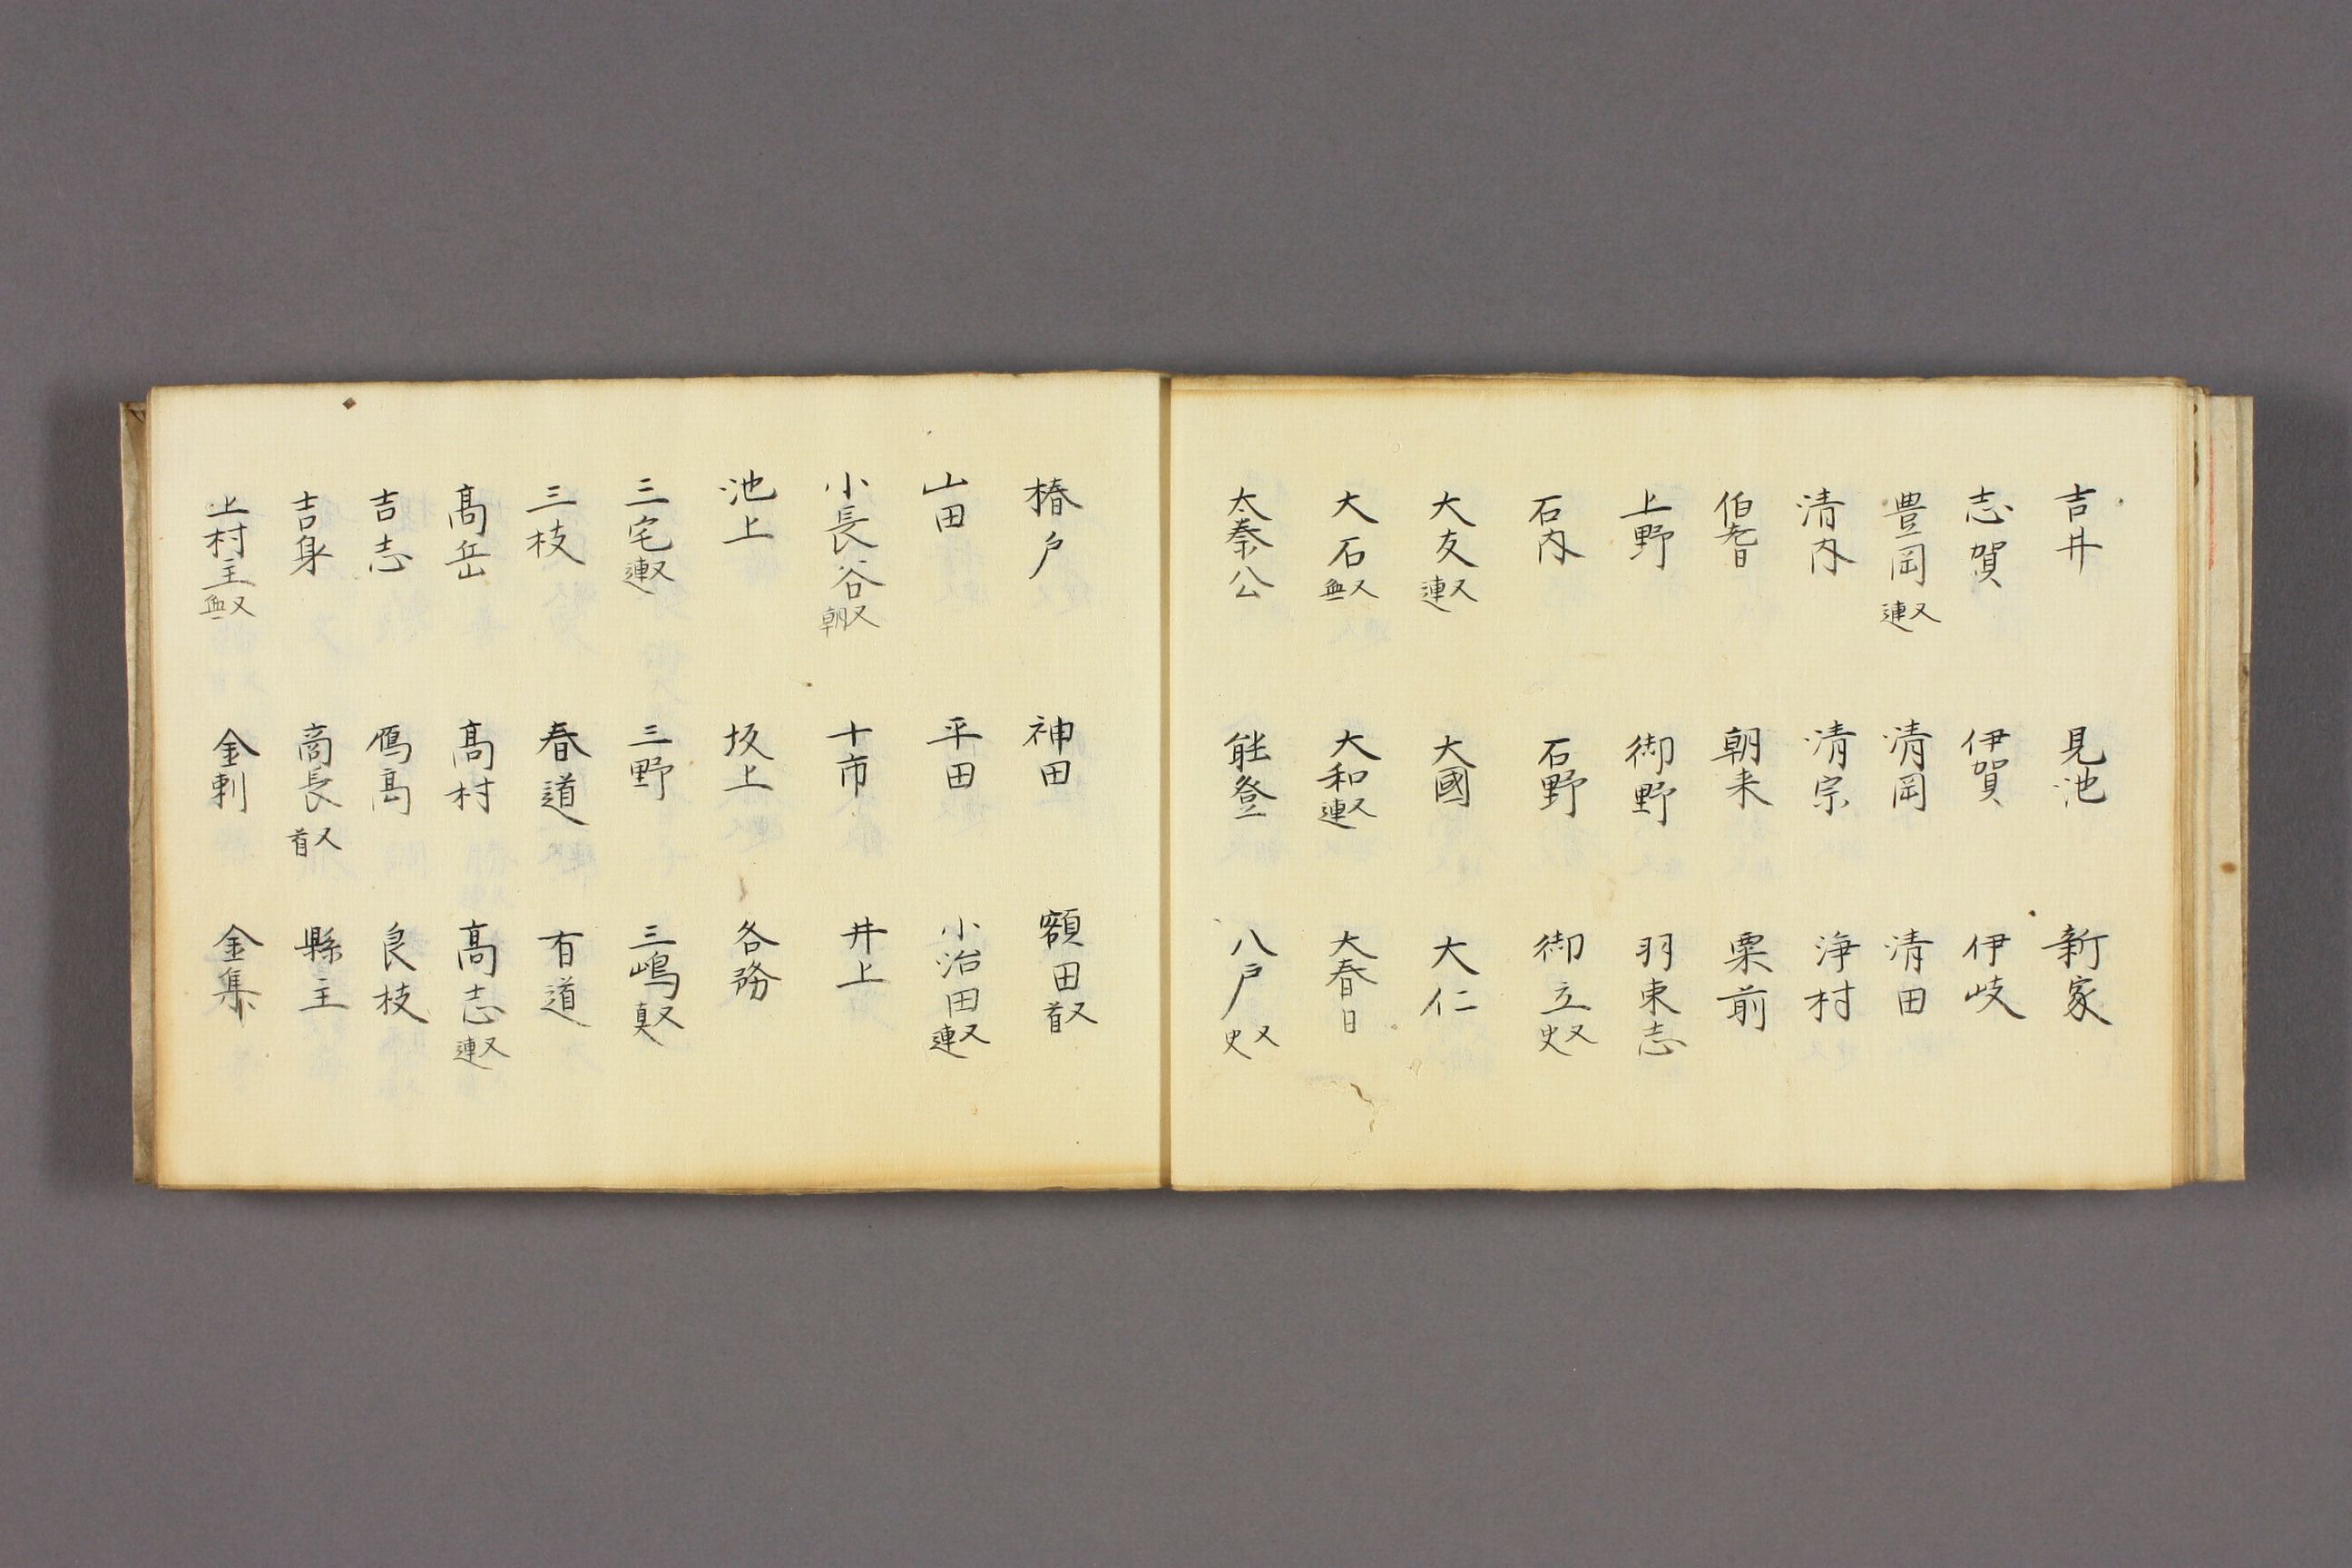 吉井 見池 新家
志賀 伊賀 伊岐
豊岡又連 清岡 清田
清内 清宗 浄村
伯耆 朝来 粟前
上野 御野 羽束志
石内 石野 御立又史
大友又連 大國 大仁
大石又無 大和又連 大春日
太秦公 能登 八戸又史
椿戸 神田 額田又首
山田 平田 小治田又連
小長谷又朝 十市 井上
池上 坂上 各務
三宅又連 三野 三嶋又真
三枝 春道 有道
髙岳 髙村 髙志又連
吉志 鴈髙 良枝
吉身 商長又首 縣主
上村主又無 金刺 金集